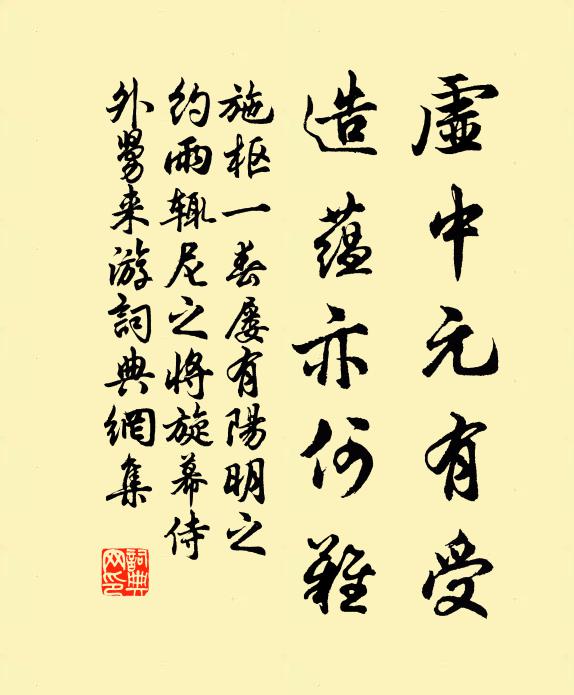 虛中元有受
造蘊亦何難
施枢一春屡有陽明之
約雨辄尼之將旋幕侍
外舅来游詞典網集
詞典网印